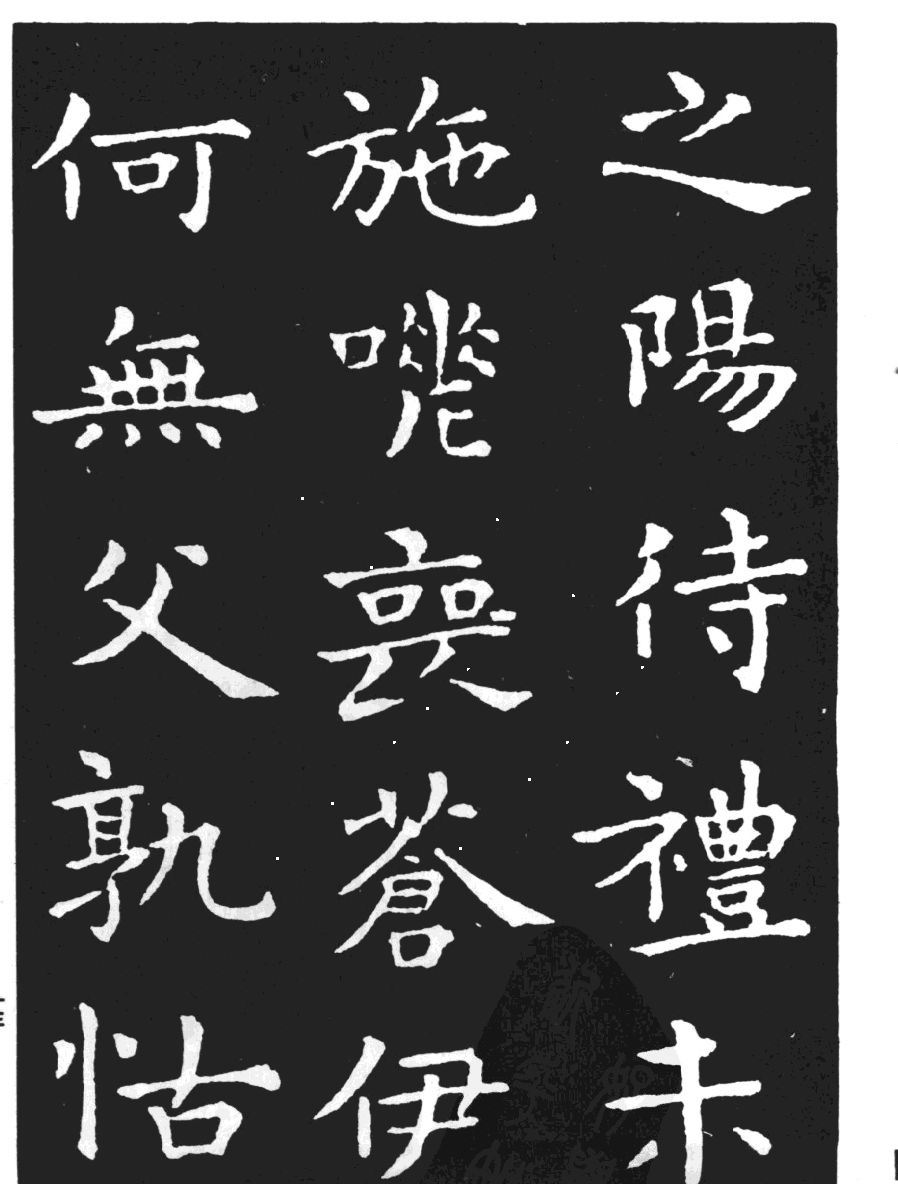 之陽待禮未
施喪蒼伊
何無父孰怙